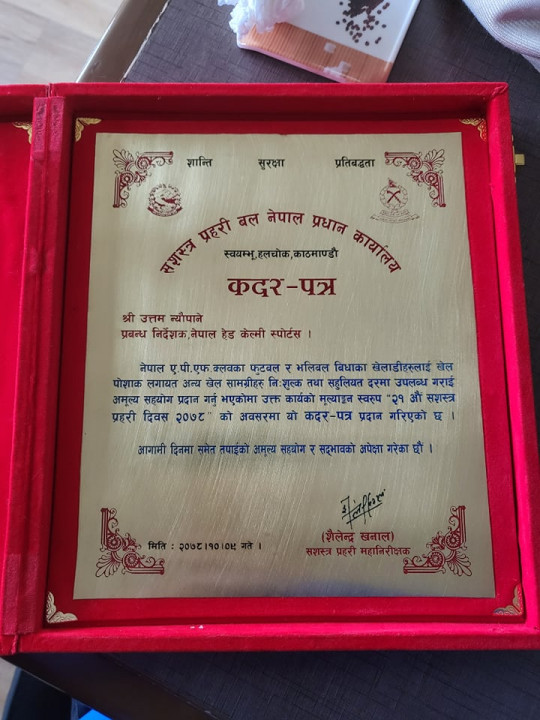 शान्ति सुरक्षा प्रतिबद्धता
सशस्त्र प्रहरी बल नेपाल प्रधान कार्यालय
स्वयम्भू,हलचोक,काठमाण्डौ
कदर-पत्र
श्री उत्तम न्यौपाने
प्रबन्ध निर्देशक,नेपाल हेड केल्मी स्पोर्टस ।
नेपाल ए.पी.एफ.क्लवका फुटबल र भलिबल बिधाका खेलाडीहरुलाई खेल
पोशाक लगायत अन्य खेल सामाग्रीहरु नि:शुल्क तथा सहुलियत दरमा उपलब्ध गराई
अमूल्य सहयोग प्रदान गर्नु भएकोमा उक्त कार्यको मूल्याङ्कन स्वरुप "२१ औं सशस्त्र
प्रहरी दिवस २०७८" को अवसरमा यो कदर-पत्र प्रदान गरिएको छ ।
आगामी दिनमा समेत तपाईको अमूल्य सहयोग र सद्भावको अपेक्षा गरेका छौं ।
(शैलेन्द्र खनाल)
मिति : २०७८।१०।०९ गते ।
सशस्त्र प्रहरी महानिरीक्षक